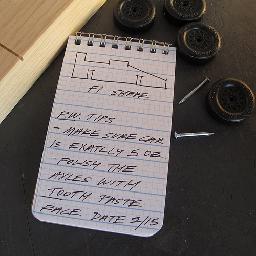 F1 SHAPE
P.W. TIPS
- MAKE SURE CAR
IS EXATLLY 5 OZ.
POLISH THE
AXLES WITH
TOOTH PASTE
RACE DATE 2/15